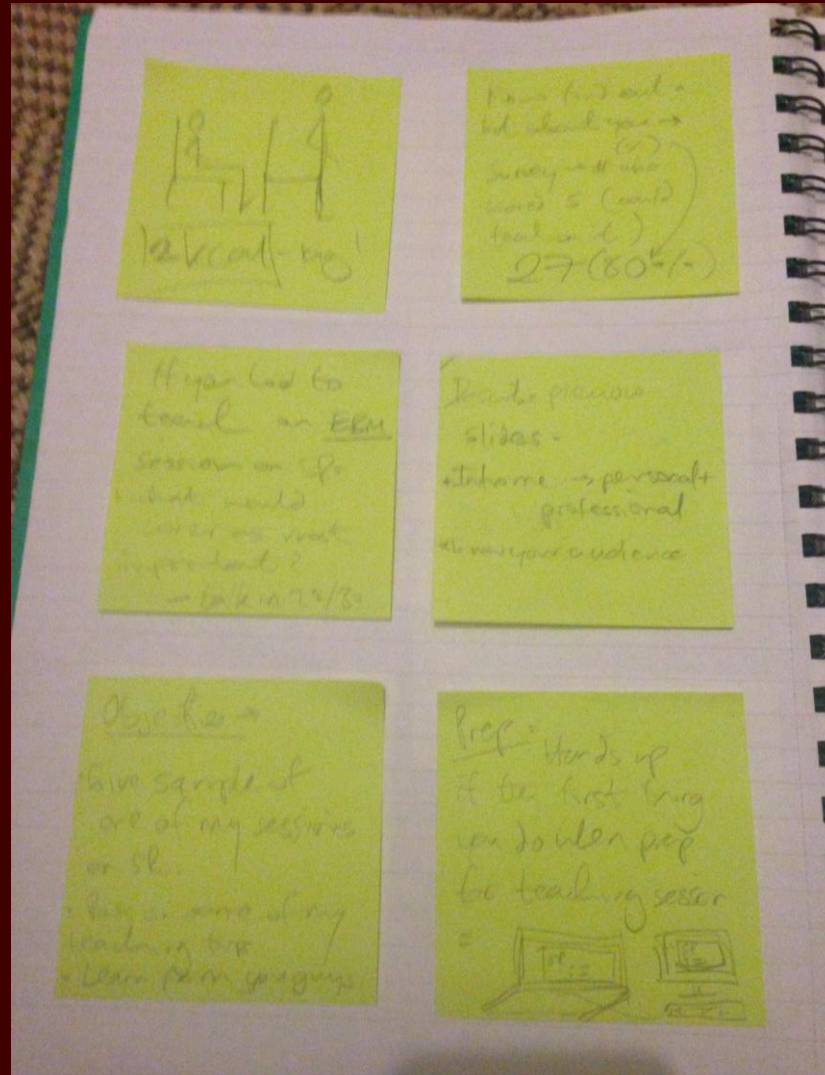 Now find out a
bit about you →
Survey → # who
scored 5 (could
teach on it)
27 (60%)
If you had to
teach an EBM
session on
what would
cover as most
important?
Describe previous
slides -
→ personal +
professional
know your audience
Objectives →
Give sample of
one of my sessions
on SR.
Pass on some of my
teaching tips
Learn from you guys
Prep - Hands up
if the first thing
you do when prep
for teaching session
=